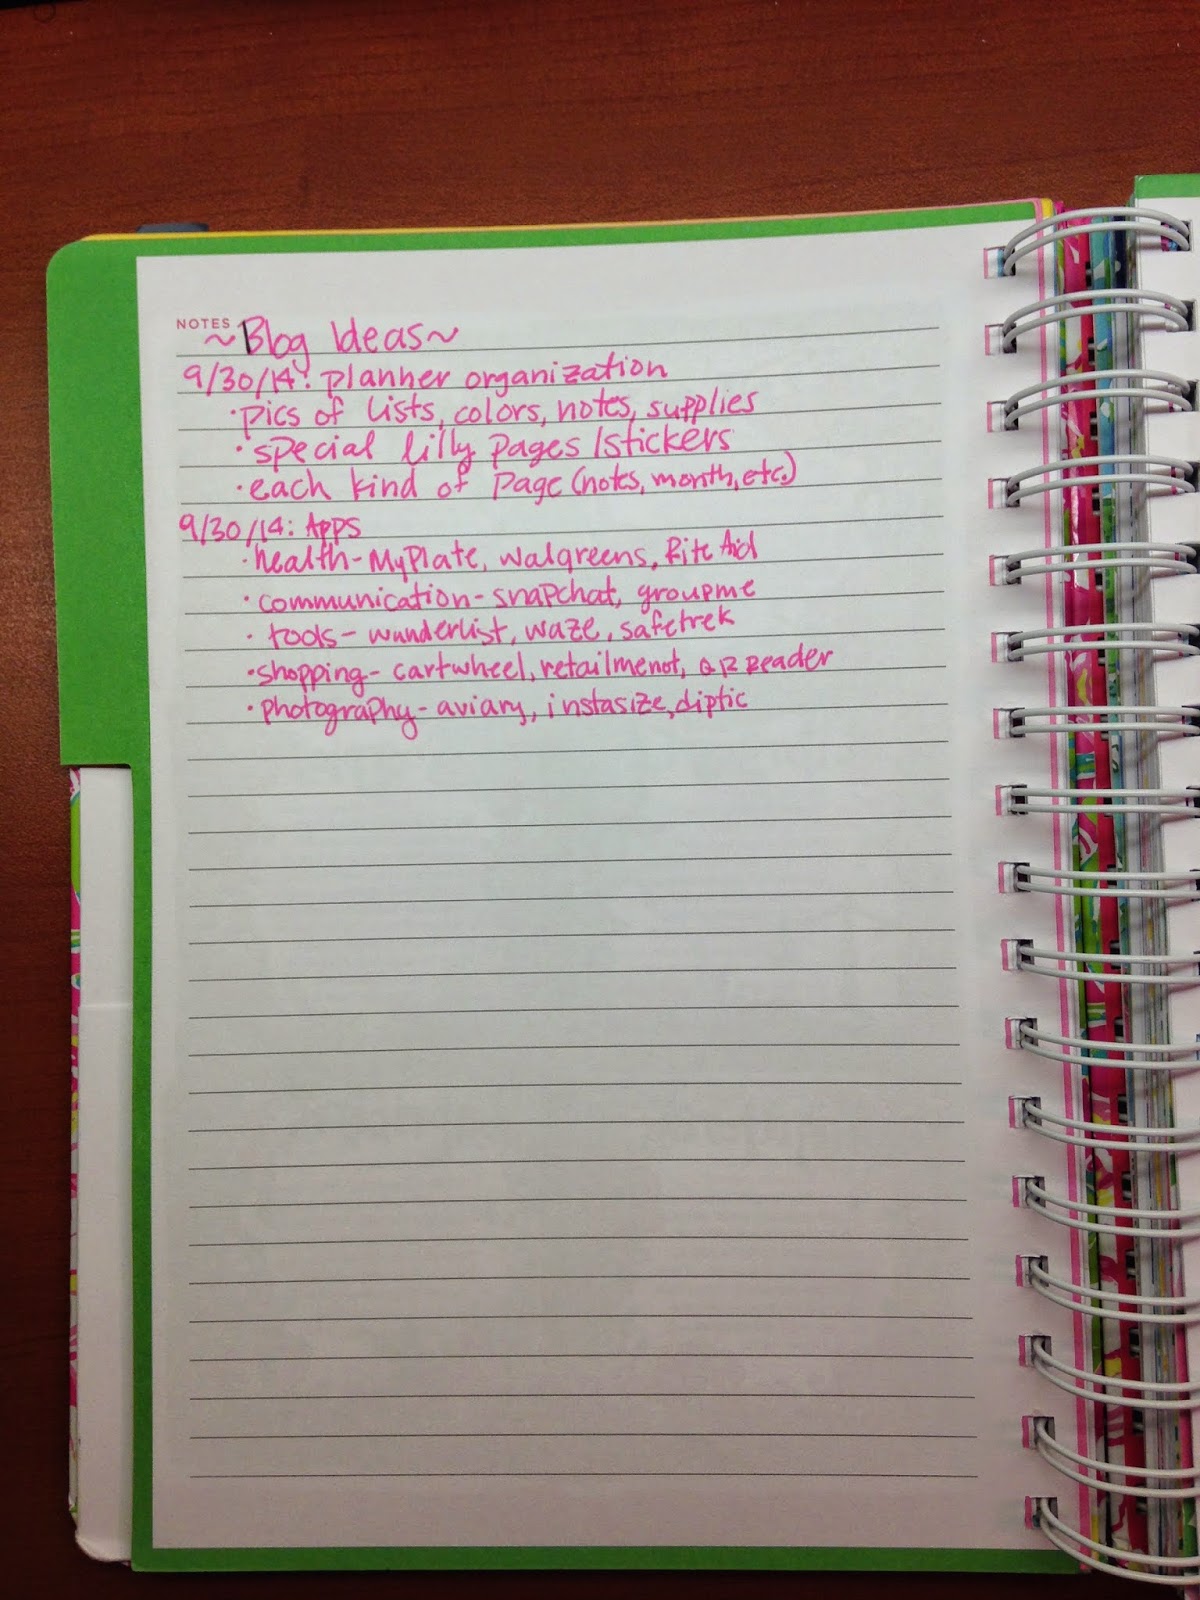 NOTES
~Blog Ideas~
9/30/14: planner organization
·pics of lists, colors, notes, supplies
·special lilly pages/stickers
·each kind of page (notes, month, etc.)
9/30/14: Apps
·health-MyPlate, Walgreens, Rite Aid
·communication-snapchat, groupme
·tools-wunderlist, waze, safetrek
·shopping-cartwheel, retailmenot, QR Reader
·photography-aviary, instasize, diptic